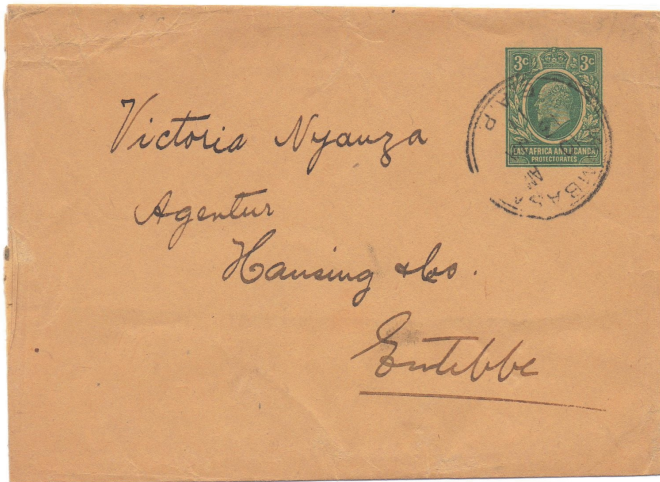 3c 3c
EAST AFRICA AND UGANDA
PROTECTORATES
A.P.
MBAS
AM
Victoria Nyanza
Agentur
Hansing & Co.
Entebbe